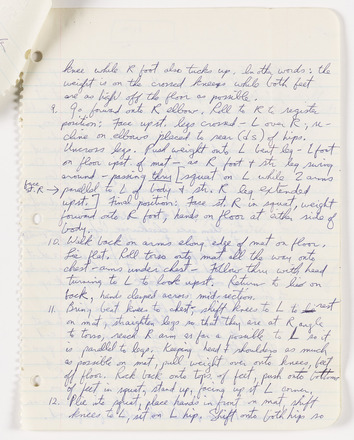 knee while R foot also tucks up. In other words: the
weight is on the crossed kneeups while both feet
are as high off the floor as possible.
9. Go forward onto R elbow. Roll to R to register
position: Face upst. legs crossed - L over R, re-
cline on elbows placed to rear (ds) of hips.
Uncross legs. Push weight onto L bent leg - L foot
on floor upst of mat - as R foot & str. leg swing
around - passing thru [squat on L while 2 arms
parallel to L of body & str. R leg extended
upst.] Final position: Face st. R in squat, weight
forward onto R foot, hands on floor at either side of
body.
10. Walk back on arms along edge of mat on floor.
Lie flat. Roll torso onto mat all the way onto
chest - arms under chest - Follow thru with head
turning to L to look upst. Return to lies on
back, hand clasped across mid-section.
11. Bring bent knees to chest, shift knees to L to rest
on mat, straighten legs so that they are at R angle
to torso, reach R arm as far a possible to L so it
is parallel to legs. Keeping head & shoulders as much
as possible on mat, pull weight over onto knees, feet
off floor. Rock back onto tops of feet, push onto bottoms
of feet in squat, stand up, facing up st L corner.
12. Plié into squat, place hands in front on mat, shift
knees to L, sit on L hip. Shift onto both hips so